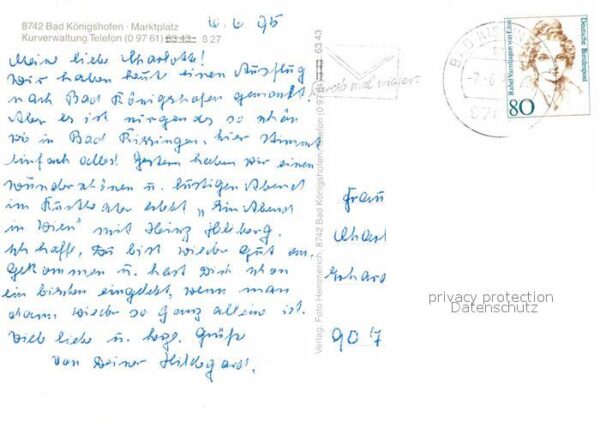 8742 Bad Königshofen · Marktplatz
Kurverwaltung Telefon (0 97 61) 63 43 - 8 27
6.6.95
Meine liebe Charlotte!
Wir haben heut einen Ausflug
nach Bad Königshofen gemacht
Aber es ist nirgends so schön
wie in Bad Kissingen, hier stimmt
einfach alles! Gestern haben wir einen
wunderschönen u. lustigen Abend
im Kurtheater erlebt „Ein Abend
in Wien" mit Heinz
Ich hoffe, Du bist wieder gut an-
gekommen u. hast Dich schon
ein bischen eingelebt, wenn man
dann wieder so ganz alleine ist.
Viele liebe u. hrzl. Grüße
von Deiner Hildegard.
Verlag: Foto Hemmerich, 8742 Bad Königshofen, Telefon (0 97 61) 63 43
Schreib mal wieder
BAD KISSINGEN
80
Deutsche Bundespost
Rahel Varnhagen von Ense
Frau
Charl
Gerhard
90 7
privacy protection
Datenschutz